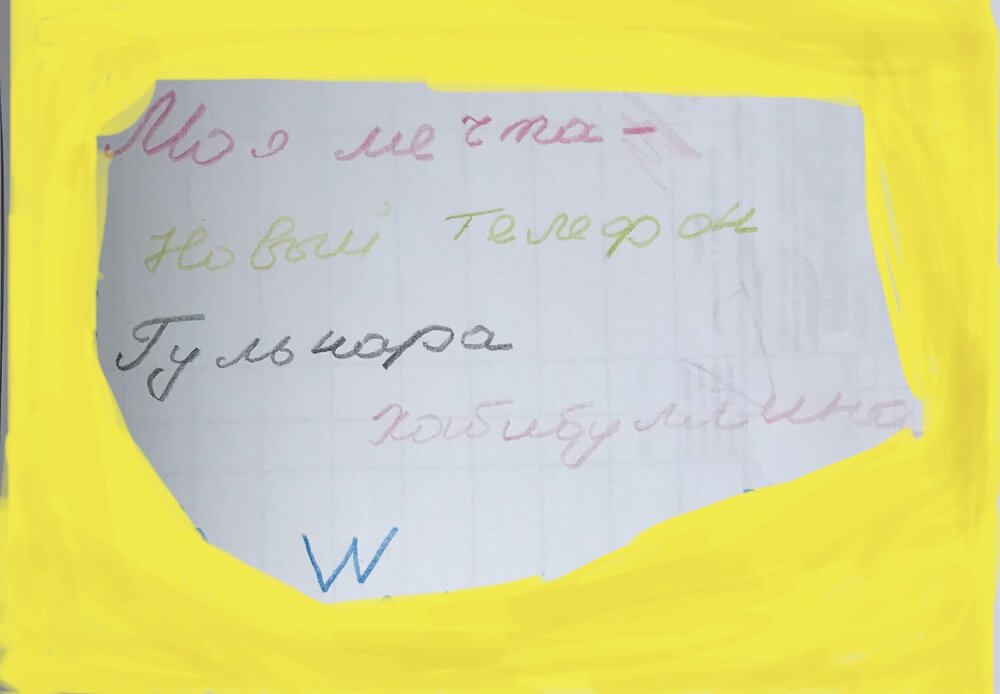 Моя мечта -
Новый телефон
Гульнара
Хабибуллина
W